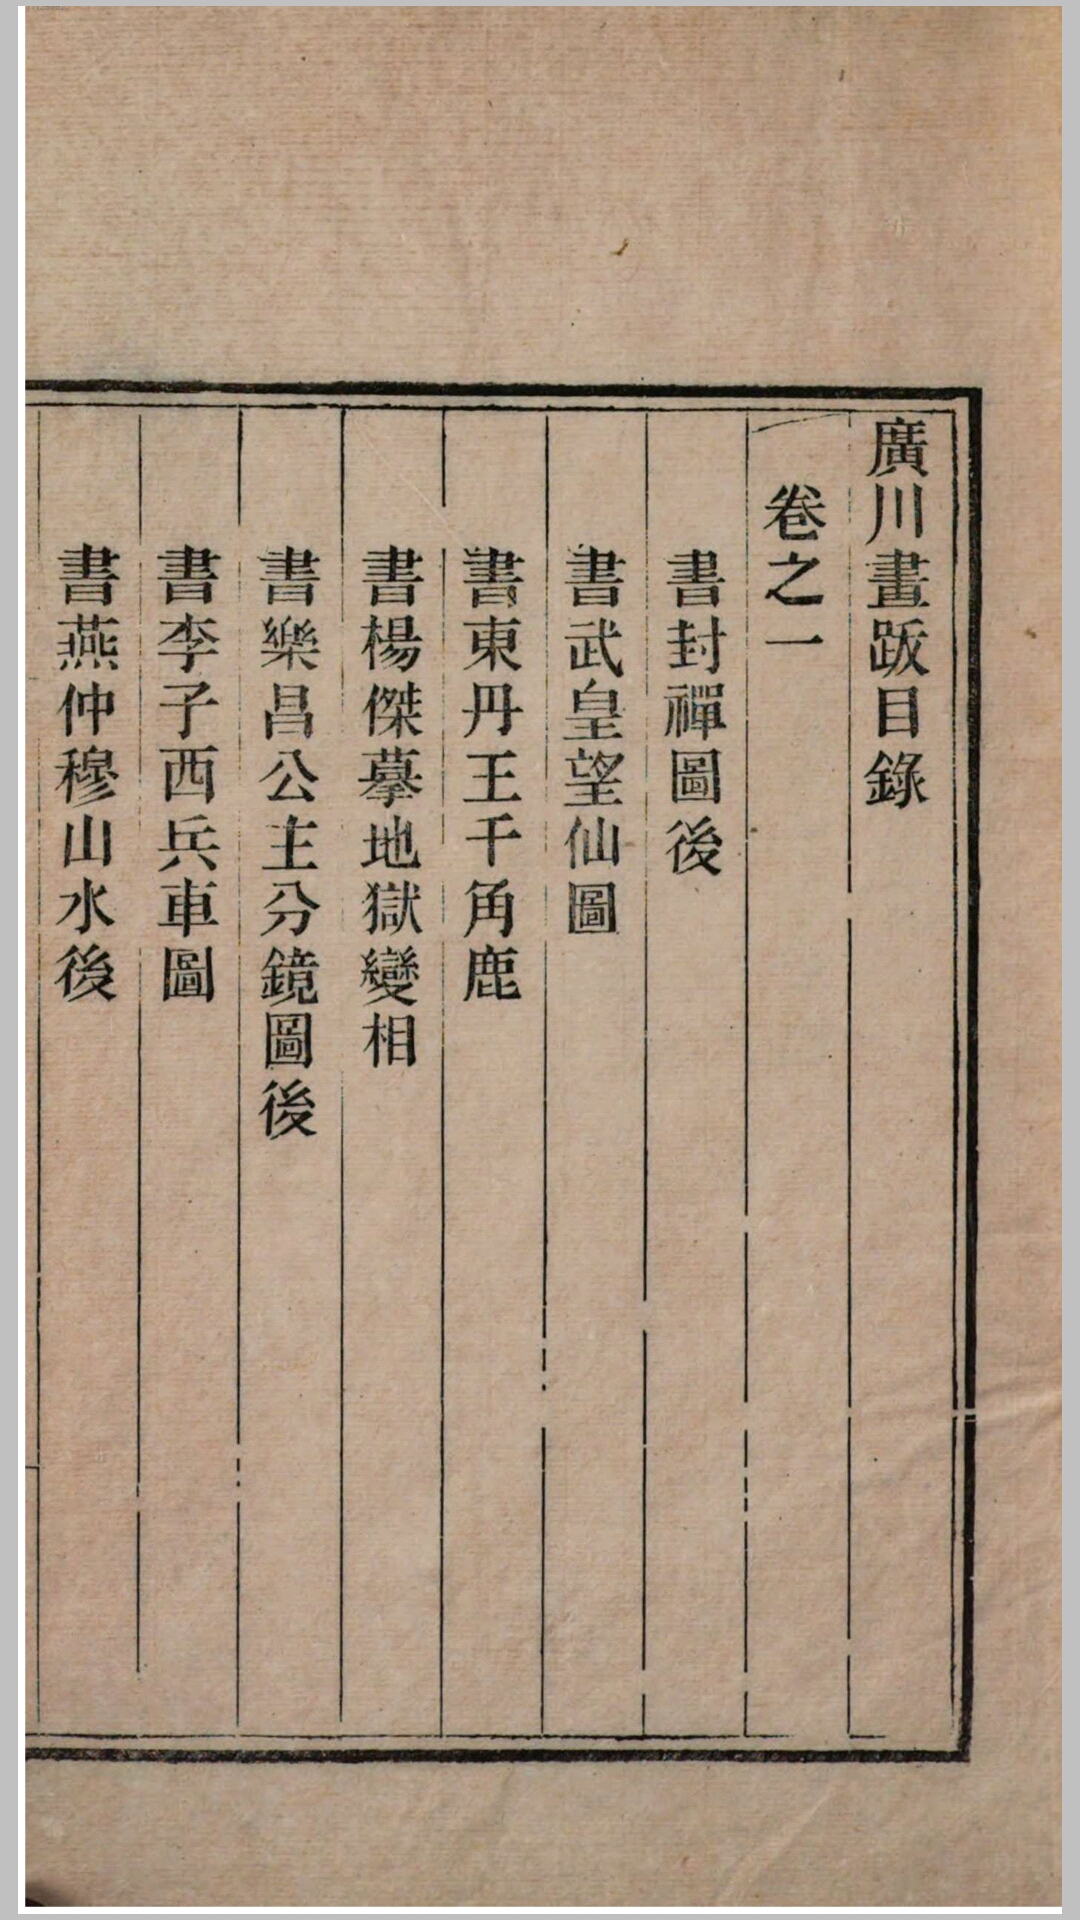 廣川畫跋目錄
卷之一
書封禪圖後
書武皇望仙圖
書東丹王千角鹿
書楊傑摹地獄變相
書樂昌公主分鏡圖後
書李子西兵車圖
書燕仲穆山水後